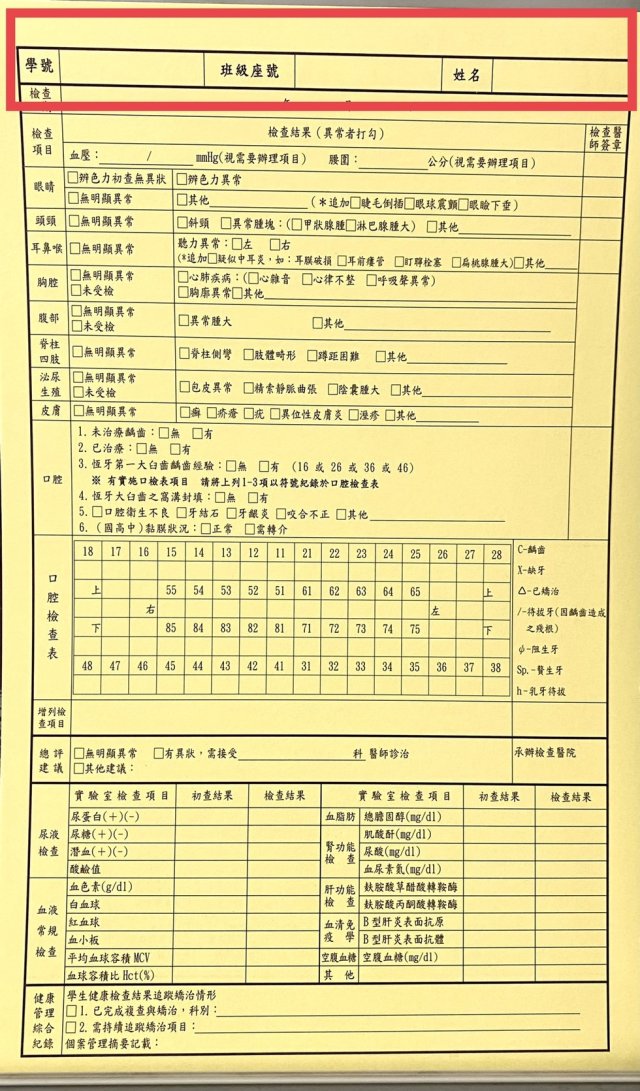 學號 班級座號 姓名
檢查
檢查項目 檢查結果(異常者打勾) 檢查醫師簽章
血壓:／mmHg(視需要辦理項目) 腰圍:公分(視需要辦理項目)
眼睛 □辨色力初查無異狀 □辨色力異常
□無明顯異常 □其他(＊追加□睫毛倒插□眼球震顫□眼瞼下垂)
頭頸 □無明顯異常 □斜頸 □異常腫塊:(□甲狀腺腫□淋巴腺腫大) □其他
耳鼻喉 □無明顯異常 聽力異常:□左 □右
(*追加□疑似中耳炎,如:耳膜破損 □耳前瘻管 □盯聹栓塞 □扁桃腺腫大)□其他
胸腔 □無明顯異常 □心肺疾病:(□心雜音 □心律不整 □呼吸聲異常)
□未受檢 □胸廓異常□其他
腹部 □無明顯異常 □異常腫大 □其他
□未受檢
脊柱四肢 □無明顯異常 □脊柱側彎 □肢體畸形 □蹲距困難 □其他
泌尿生殖 □無明顯異常 □包皮異常 □精索靜脈曲張 □陰囊腫大 □其他
□未受檢
皮膚 □無明顯異常 □癬 □疥瘡 □疣 □異位性皮膚炎 □溼疹 □其他
口腔 1.未治療齲齒:□無 □有
2.已治療:□無 □有
3.恆牙第一大臼齒齲齒經驗:□無 □有 (16 或 26 或 36 或 46)
※ 有實施口檢表項目 請將上列1-3項以符號紀錄於口腔檢查表
4.恆牙大臼齒之窩溝封填:□無 □有
5.□口腔衛生不良 □牙結石 □牙齦炎 □咬合不正 □其他
6.(國高中)黏膜狀況:□正常 □需轉介
口腔檢查表
18 17 16 15 14 13 12 11 21 22 23 24 25 26 27 28
上 55 54 53 52 51 61 62 63 64 65 上
右 左
下 85 84 83 82 81 71 72 73 74 75 下
48 47 46 45 44 43 42 41 31 32 33 34 35 36 37 38
C-齲齒
X-缺牙
△-已矯治
/-待拔牙(因齲齒造成之殘根)
ψ-阻生牙
Sp.-贅生牙
h-乳牙待拔
增列檢查項目
總評建議 □無明顯異常 □有異狀,需接受 科 醫師診治 承辦檢查醫院
□其他建議:
實驗室檢查項目 初查結果 檢查結果 實驗室檢查項目 初查結果 檢查結果
尿液檢查 尿蛋白(+)(-) 血脂肪 總膽固醇(mg/dl)
尿糖(+)(-) 腎功能檢查 肌酸酐(mg/dl)
潛血(+)(-) 尿酸(mg/dl)
酸鹼值 血尿素氮(mg/dl)
血液常規檢查 血色素(g/dl) 肝功能檢查 麩胺酸草醋酸轉鞍酶
白血球 麩胺酸丙酮酸轉鞍酶
紅血球 血清免疫學 B型肝炎表面抗原
血小板 B型肝炎表面抗體
平均血球容積MCV 空腹血糖 空腹血糖(mg/dl)
血球容積比Hct(%) 其他
健康管理綜合紀錄 學生健康檢查結果追蹤矯治情形
□1.已完成複查與矯治,科別:
□2.需持續追蹤矯治項目:
個案管理摘要記載: